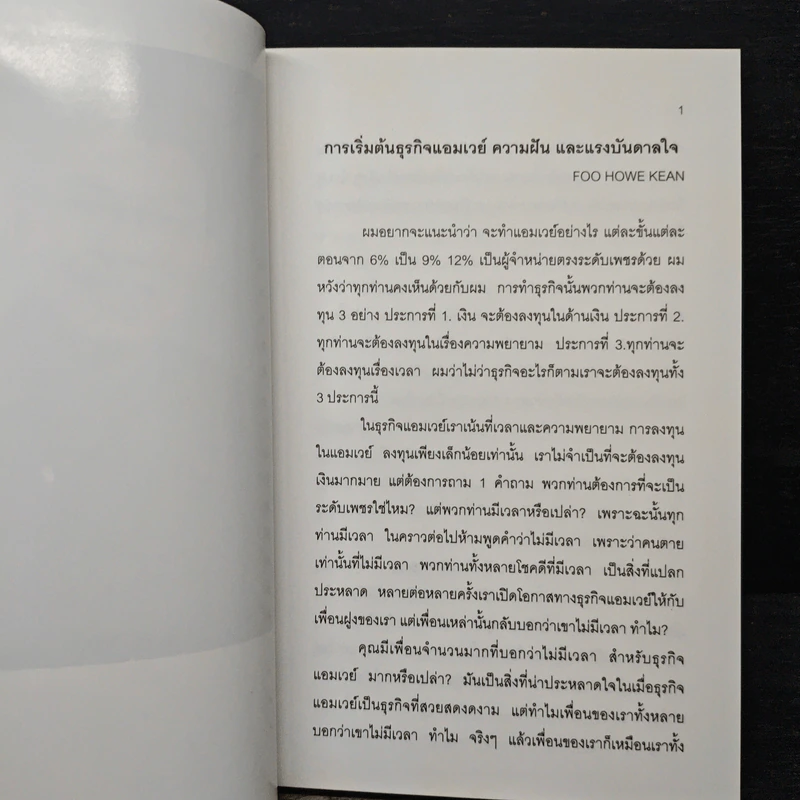 1
การเริ่มต้นธุรกิจแอมเวย์ ความฝัน และแรงบันดาลใจ
FOO HOWE KEAN
ผมอยากจะแนะนำว่า จะทำแอมเวย์อย่างไร แต่ละขั้นแต่ละ
ตอนจาก 6% เป็น 9% 12% เป็นผู้จำหน่ายตรงระดับเพชรด้วย ผม
หวังว่าทุกท่านคงเห็นด้วยกับผม การทำธุรกิจนั้นพวกท่านจะต้องลง
ทุน 3 อย่าง ประการที่ 1. เงิน จะต้องลงทุนในด้านเงิน ประการที่ 2.
ทุกท่านจะต้องลงทุนในเรื่องความพยายาม ประการที่ 3.ทุกท่านจะ
ต้องลงทุนเรื่องเวลา ผมว่าไม่ว่าธุรกิจอะไรก็ตามเราจะต้องลงทุนทั้ง
3 ประการนี้
ในธุรกิจแอมเวย์เราเน้นที่เวลาและความพยายาม การลงทุน
ในแอมเวย์ ลงทุนเพียงเล็กน้อยเท่านั้น เราไม่จำเป็นที่จะต้องลงทุน
เงินมากมาย แต่ต้องการถาม 1 คำถาม พวกท่านต้องการที่จะเป็น
ระดับเพชรใช่ไหม? แต่พวกท่านมีเวลาหรือเปล่า? เพราะฉะนั้นทุก
ท่านมีเวลา ในคราวต่อไปห้ามพูดคำว่าไม่มีเวลา เพราะว่าคนตาย
เท่านั้นที่ไม่มีเวลา พวกท่านทั้งหลายโชคดีที่มีเวลา เป็นสิ่งที่แปลก
ประหลาด หลายต่อหลายครั้งเราเปิดโอกาสทางธุรกิจแอมเวย์ให้กับ
เพื่อนฝูงของเรา แต่เพื่อนเหล่านั้นกลับบอกว่าเขาไม่มีเวลา ทำไม?
คุณมีเพื่อนจำนวนมากที่บอกว่าไม่มีเวลา สำหรับธุรกิจ
แอมเวย์ มากหรือเปล่า? มันเป็นสิ่งที่น่าประหลาดใจในเมื่อธุรกิจ
แอมเวย์เป็นธุรกิจที่สวยสดงดงาม แต่ทำไมเพื่อนของเราทั้งหลาย
บอกว่าเขาไม่มีเวลา ทำไม จริงๆ แล้วเพื่อนของเราก็เหมือนเราทั้ง